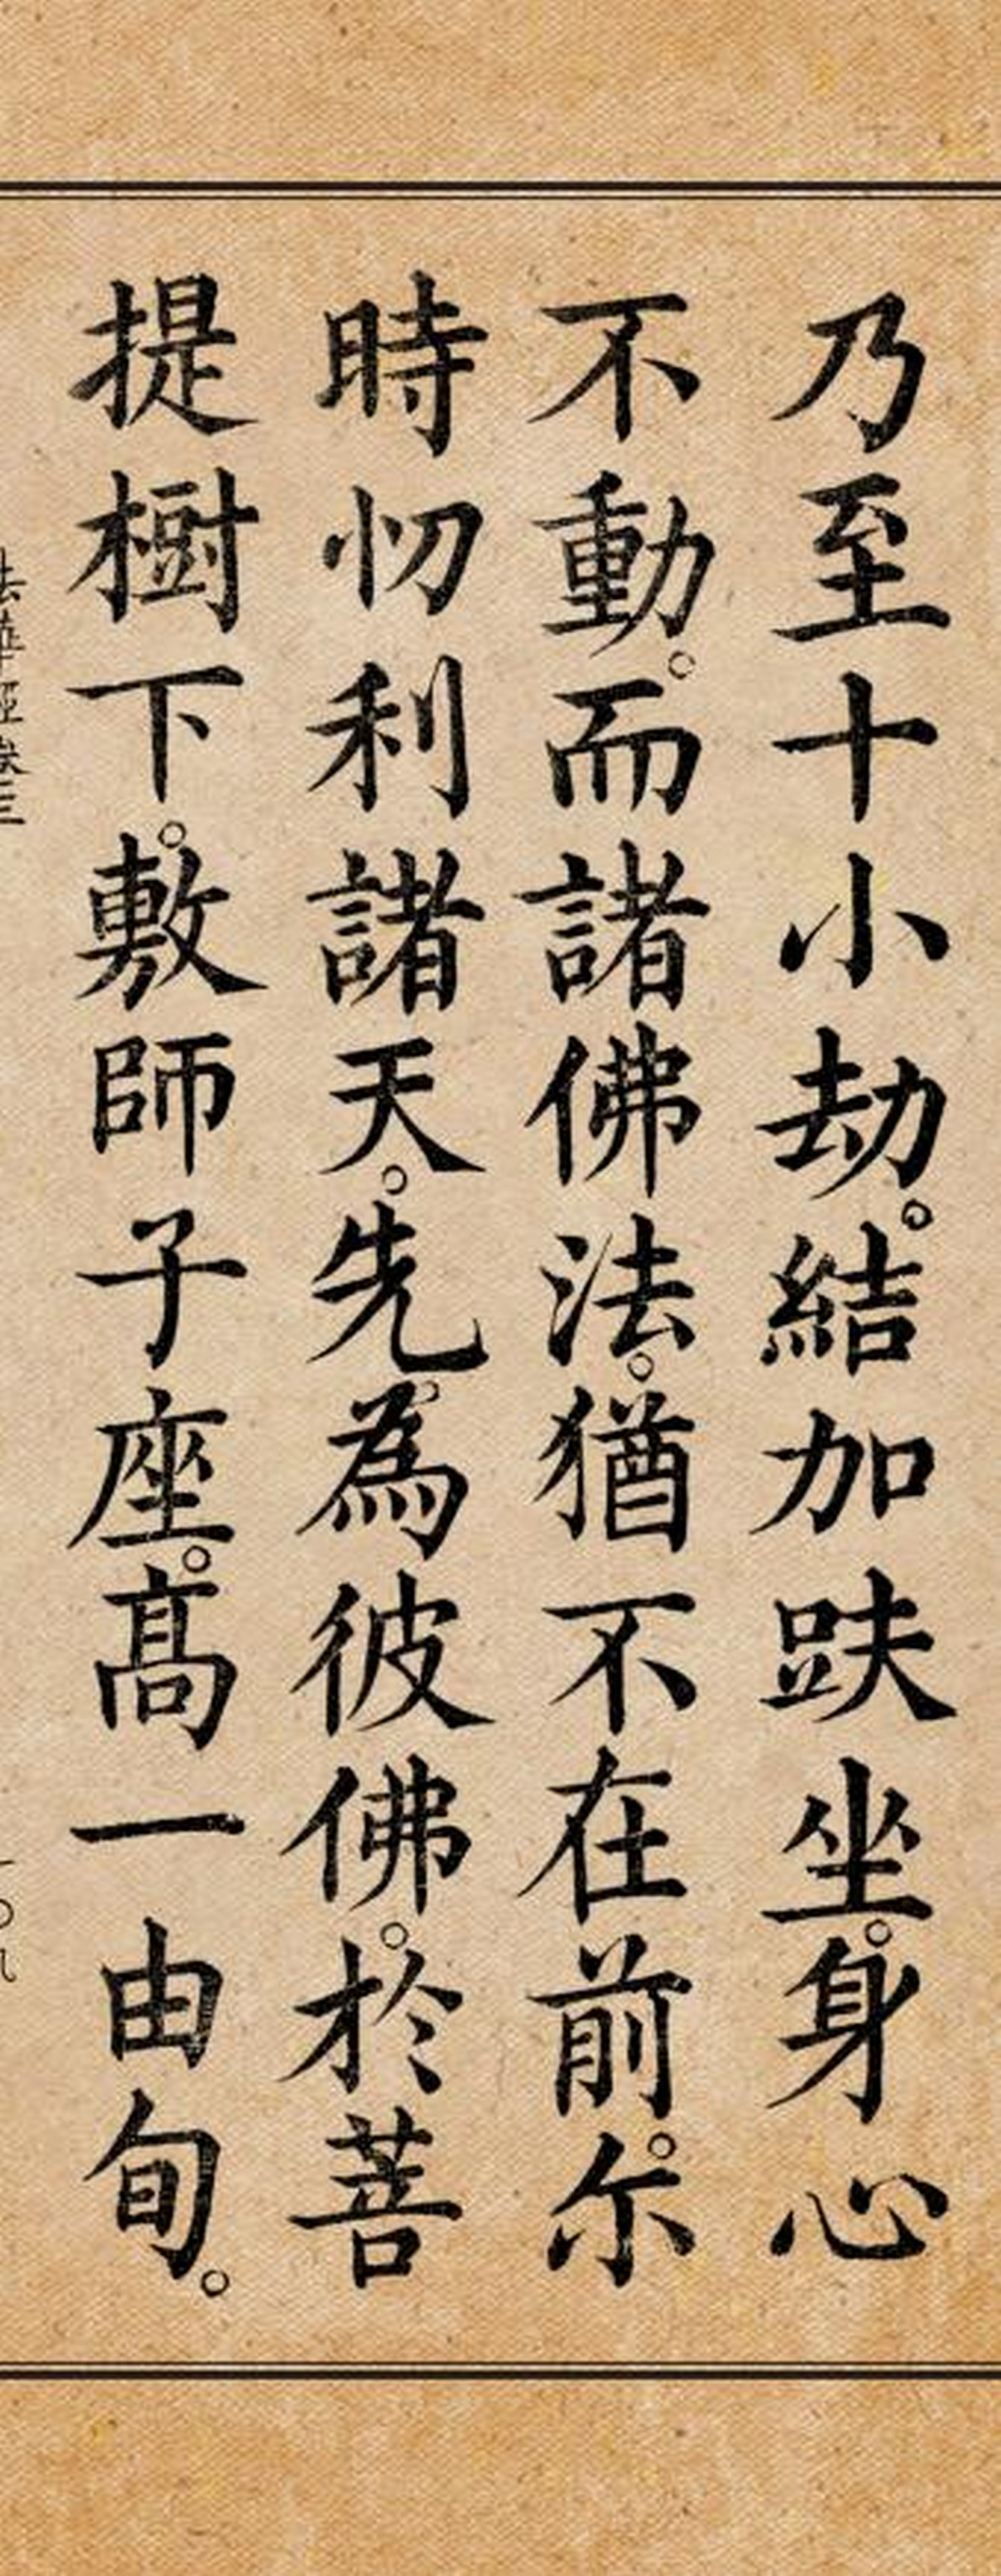 乃至十小劫。結加趺坐。身心
不動。而諸佛法。猶不在前。尒
時忉利諸天。先。為彼佛。於菩
提樹下。敷師子座。高一由旬。
法華經卷三
一〇九